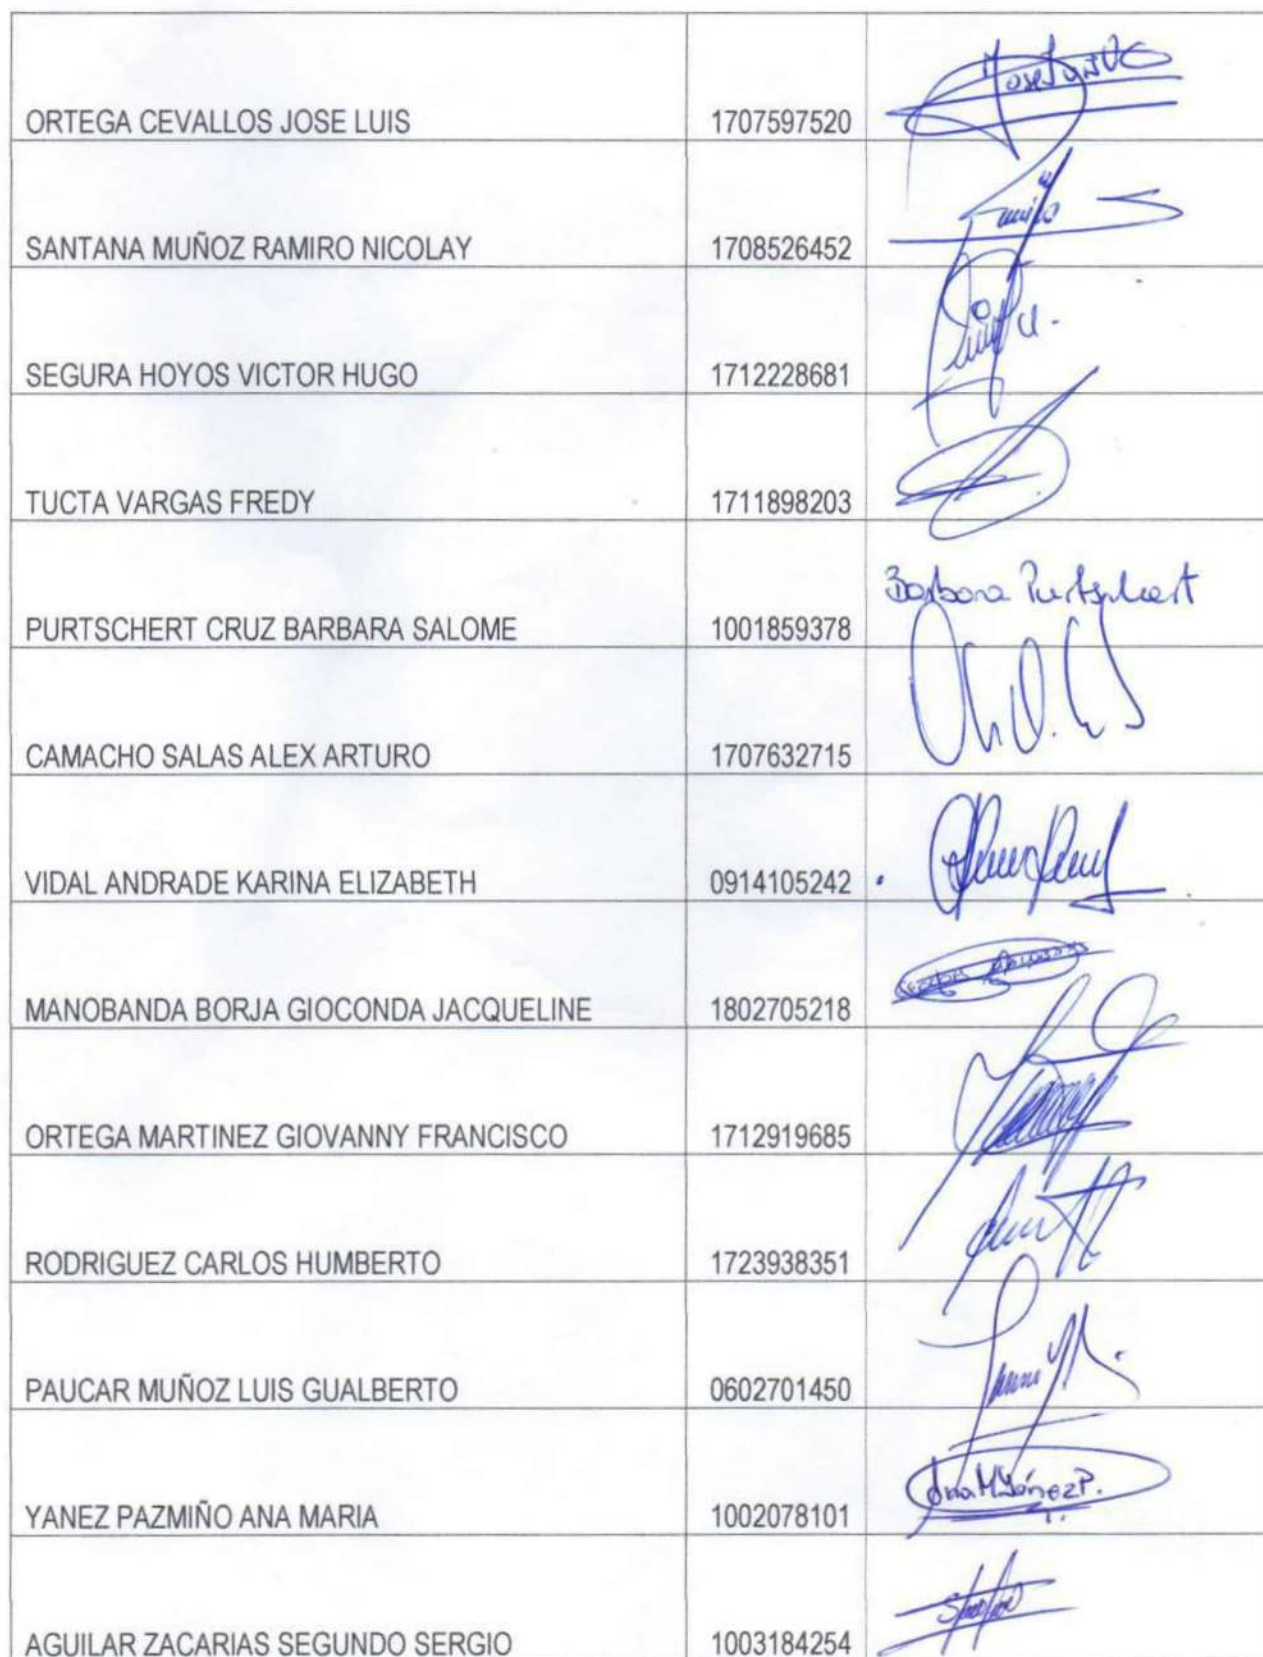 ORTEGA CEVALLOS JOSE LUIS 1707597520
SANTANA MUÑOZ RAMIRO NICOLAY 1708526452
SEGURA HOYOS VICTOR HUGO 1712228681
TUCTA VARGAS FREDY 1711898203
PURTSCHERT CRUZ BARBARA SALOME 1001859378 Barbara Purtschert
CAMACHO SALAS ALEX ARTURO 1707632715
VIDAL ANDRADE KARINA ELIZABETH 0914105242
MANOBANDA BORJA GIOCONDA JACQUELINE 1802705218
ORTEGA MARTINEZ GIOVANNY FRANCISCO 1712919685
RODRIGUEZ CARLOS HUMBERTO 1723938351
PAUCAR MUÑOZ LUIS GUALBERTO 0602701450
YANEZ PAZMIÑO ANA MARIA 1002078101 Ana M Yánez P.
AGUILAR ZACARIAS SEGUNDO SERGIO 1003184254